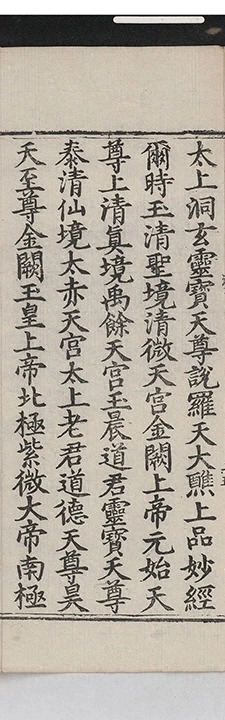 太上洞玄靈寶天尊說羅天大醮上品妙經
爾時玉清聖境清微天宮金闕上帝元始天
尊上清真境禹餘天宮玉晨道君靈寶天尊
泰清仙境太赤天宮太上老君道德天尊昊
天至尊金闕玉皇上帝北極紫微大帝南極